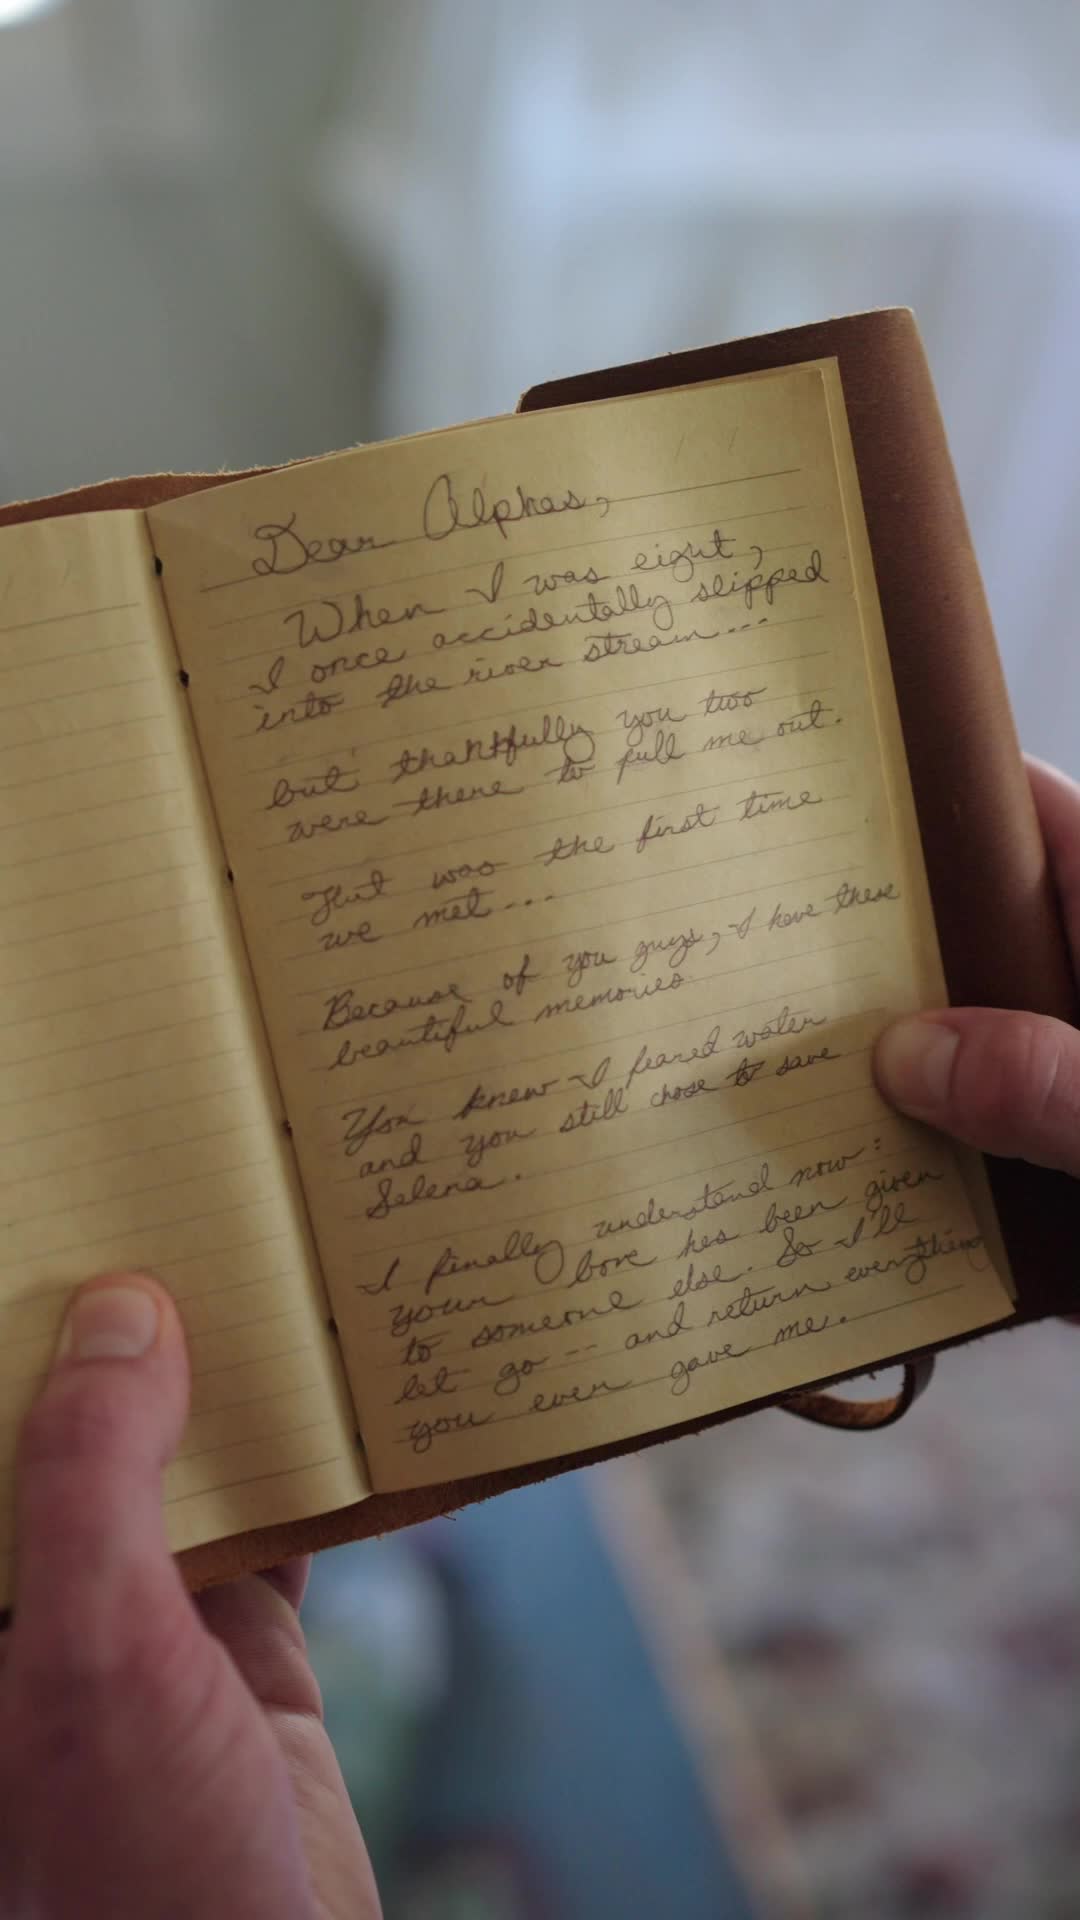 Dear Alphas,
When I was eight,
I once accidentally slipped
into the river stream...
but thankfully you two
were there to pull me out.
That was the first time
we met...
Because of you guys, I have these
beautiful memories
You knew I feared water
and you still chose to save
Selena.
I finally understand now:
your love has been given
to someone else. So I'll
let go -- and return everything
you ever gave me.